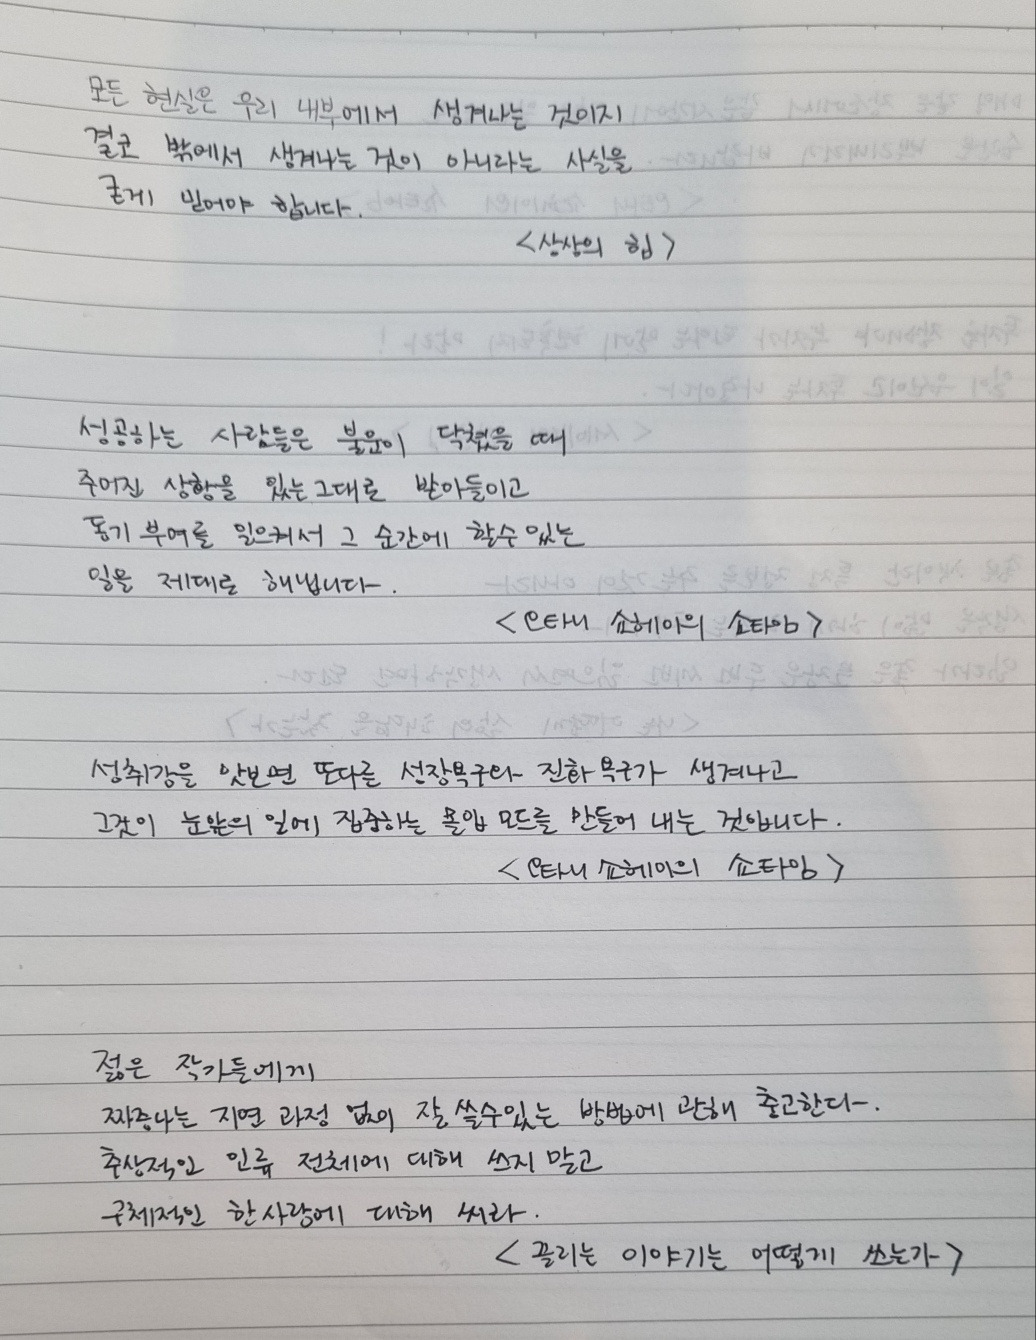 모든 현실은 우리 내부에서 생겨나는 것이지
결코 밖에서 생겨나는 것이 아니라는 사실을
굳게 믿어야 합니다.
<상상의 힘>
성공하는 사람들은 불운이 닥쳤을 때
주어진 상황을 있는 그대로 받아들이고
동기 부여를 일으켜서 그 순간에 할수 있는
일을 제대로 해냅니다.
<오타니 쇼헤이의 쇼타임>
성취감을 맛보면 또다른 성장욕구와 진화 욕구가 생겨나고
그것이 눈앞의 일에 집중하는 몰입 모드를 만들어 내는 것입니다.
<오타니 쇼헤이의 쇼타임>
젊은 작가들에게
짜증나는 지연 과정 없이 잘 쓸수있는 방법에 관해 충고한다.
추상적인 인류 전체에 대해 쓰지 말고
구체적인 한사람에 대해 써라.
<끌리는 이야기는 어떻게 쓰는가>